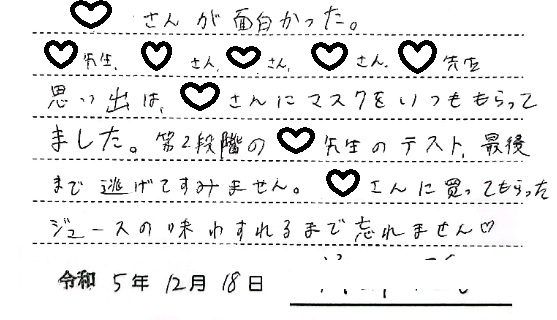 ♡さんが面白かった。
♡先生、♡さん、♡さん、♡さん、♡先生
思い出は、♡さんにマスクをいつももらって
ました。第2段階の♡先生のテスト、最後
まで逃げてすみません。♡さんに買ってもらった
ジュースの味わすれるまで忘れません♡
令和 5年 12月 18日